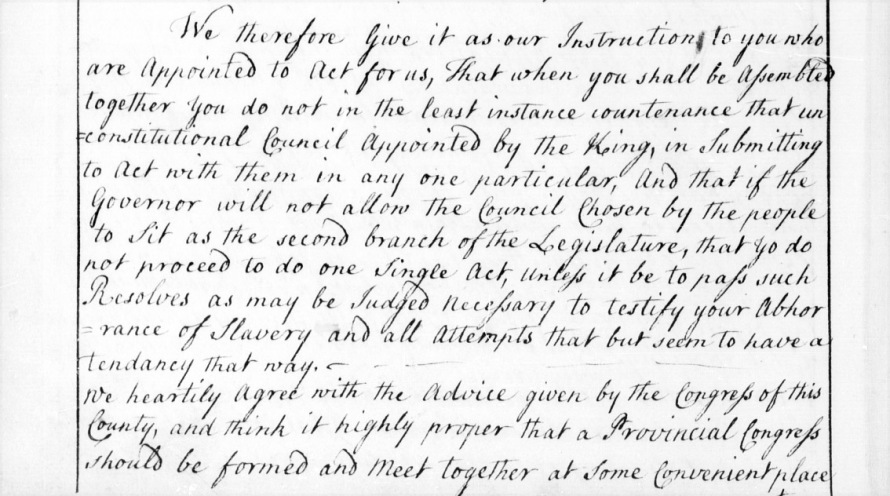 We therefore Give it as our Instruction to you who
are Appointed to Act for us, That when you shall be Assembted
together You do not in the least instance countenance that un
=constitutional Council Appointed by the King, in Submitting
to Act with them in any one particular, And that if the
Governor will not allow the Council Chosen by the people
to Sit as the second branch of the Legislature, that yo do
not proceed to do one Single Act, unless it be to pass such
Resolves as may be Judged necessary to testify your Abhor
=rance of Slavery and all Attempts that but seem to have a
tendancy that way. –
We heartily Agree with the Advice given by the Congress of this
County, and think it highly proper that a Provincial Congress
should be formed and Meet together at Some Convenient place